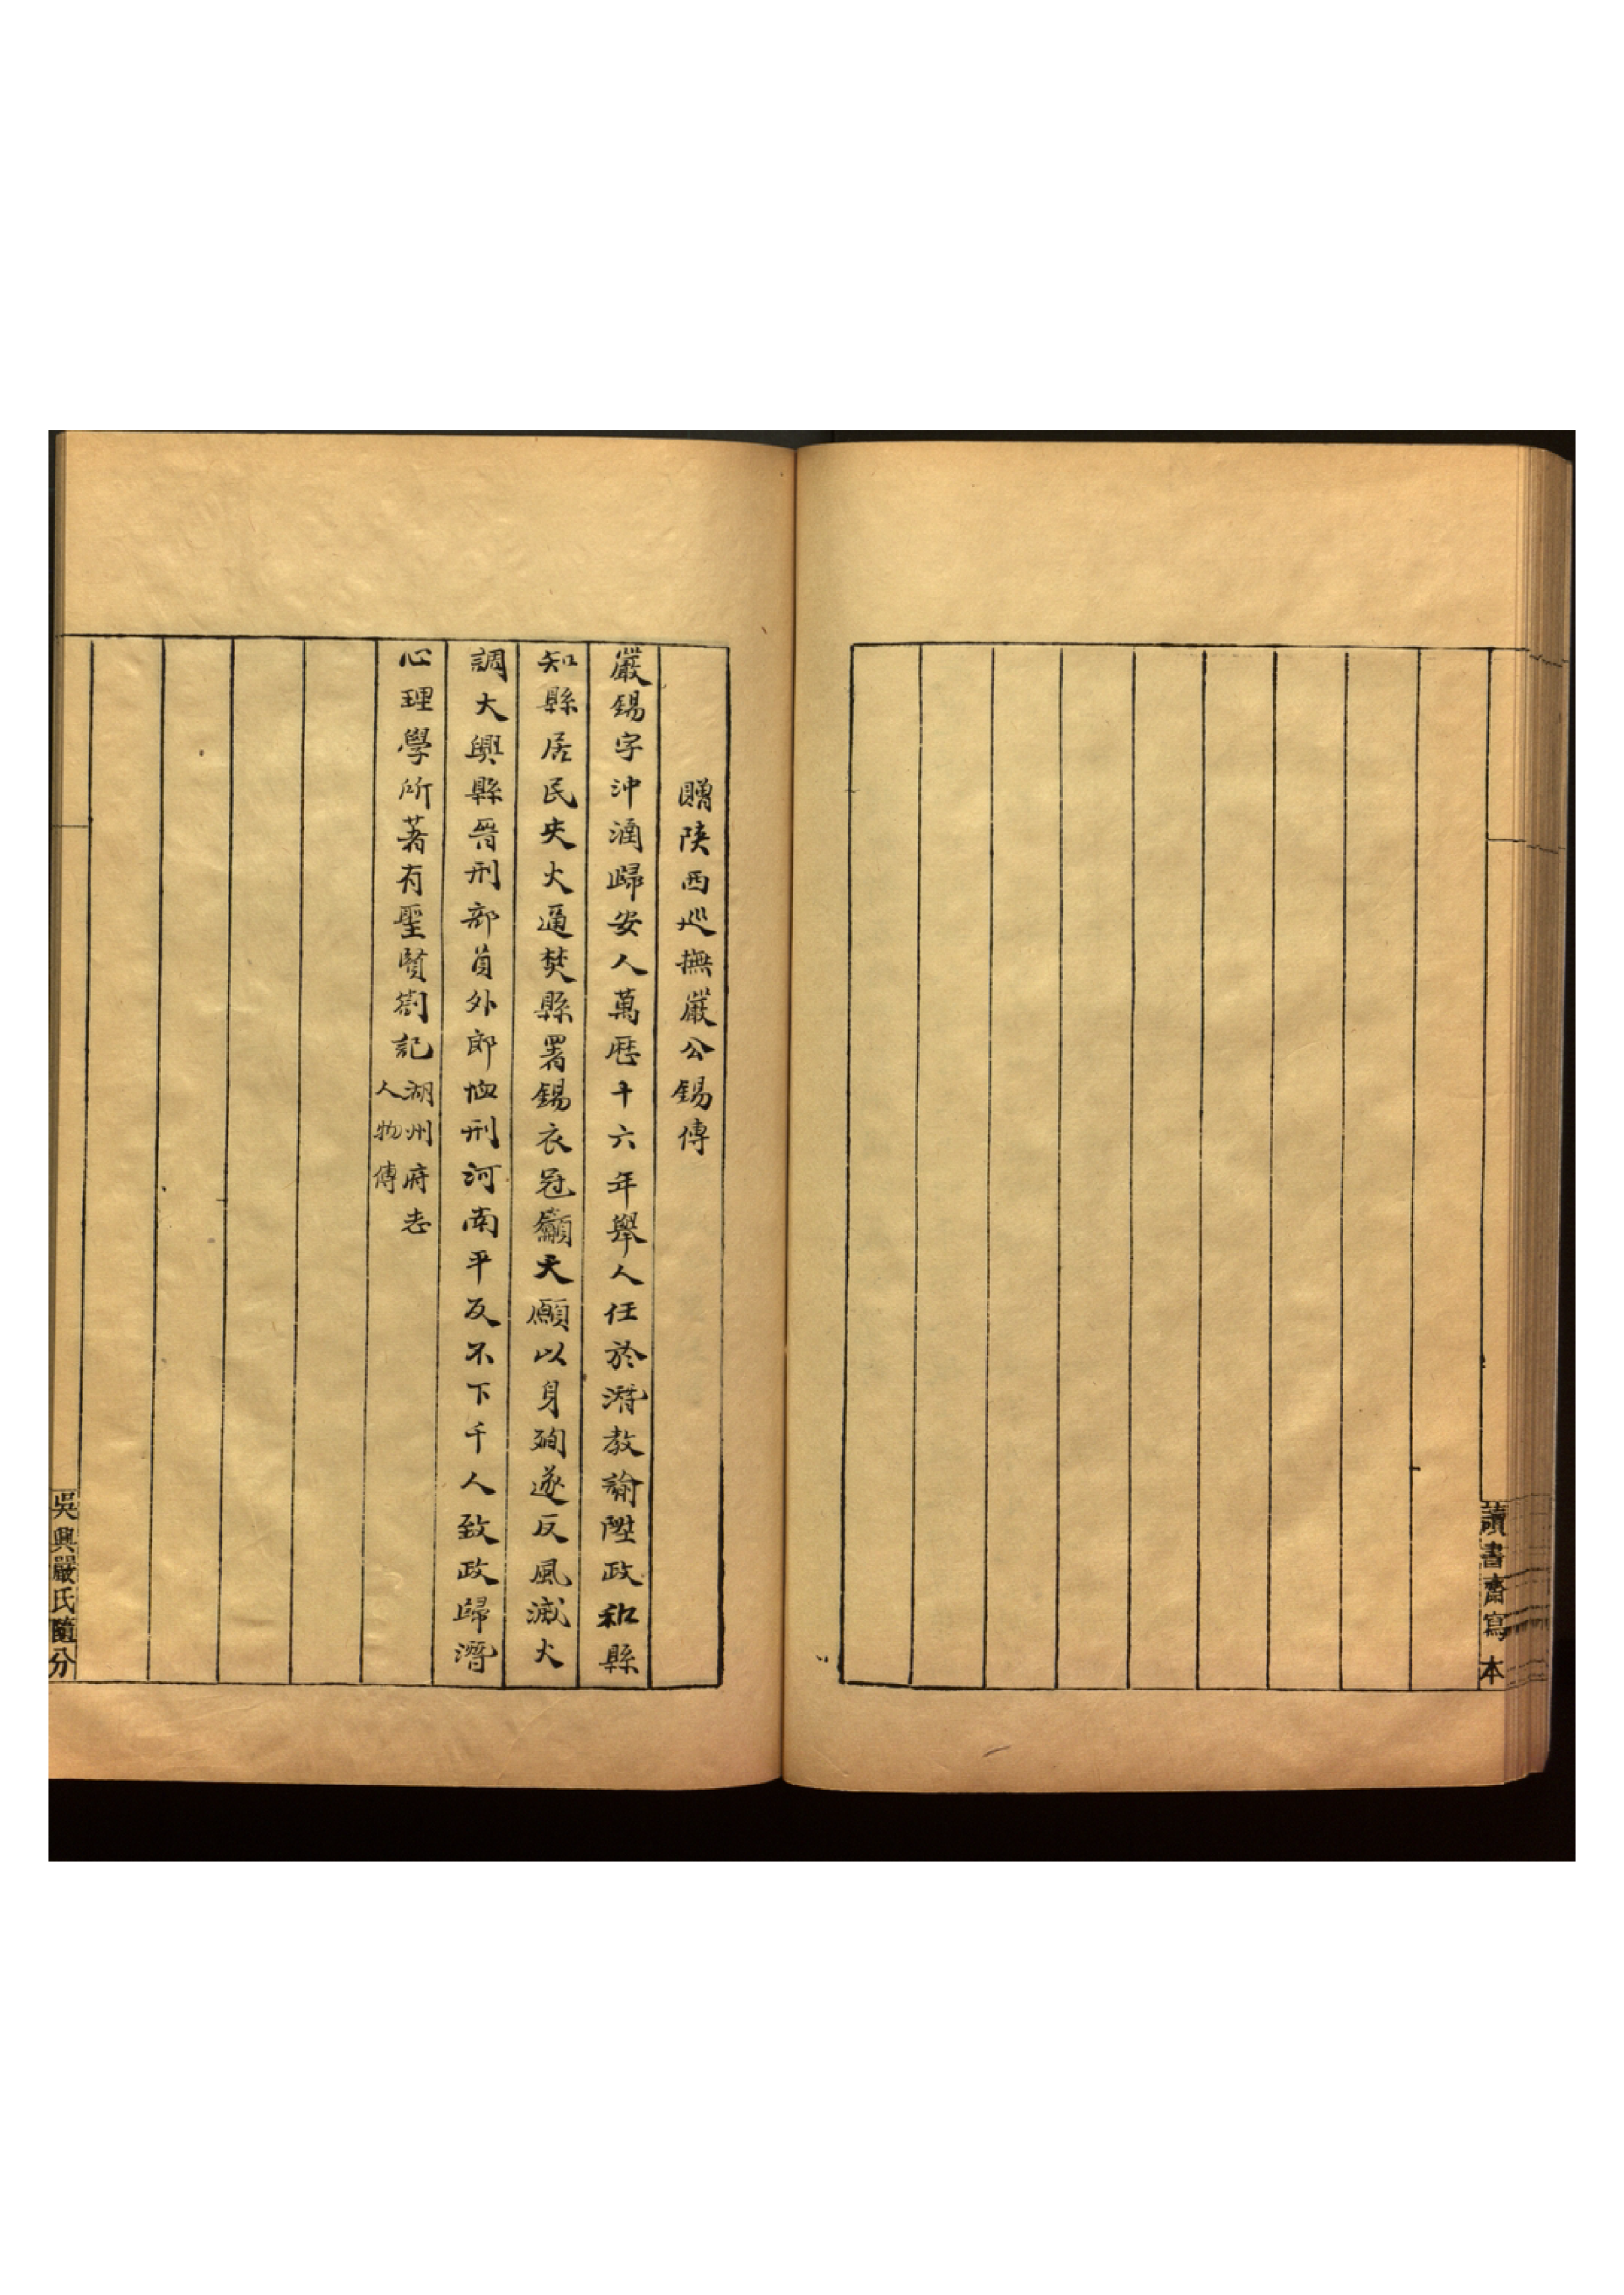 讀書齋寫本
贈陝西巡撫嚴公錫傳
嚴錫字沖涵歸安人萬厯十六年舉人任於潛教諭陞政和縣
知縣居民失火逼焚縣署錫衣冠籲天願以身殉遂反風滅火
調大興縣晉刑部員外郎恤刑河南平反不下千人致政歸潛
心理學所著有聖賢劄記湖州府志
人物傳
吳興嚴氏隨分